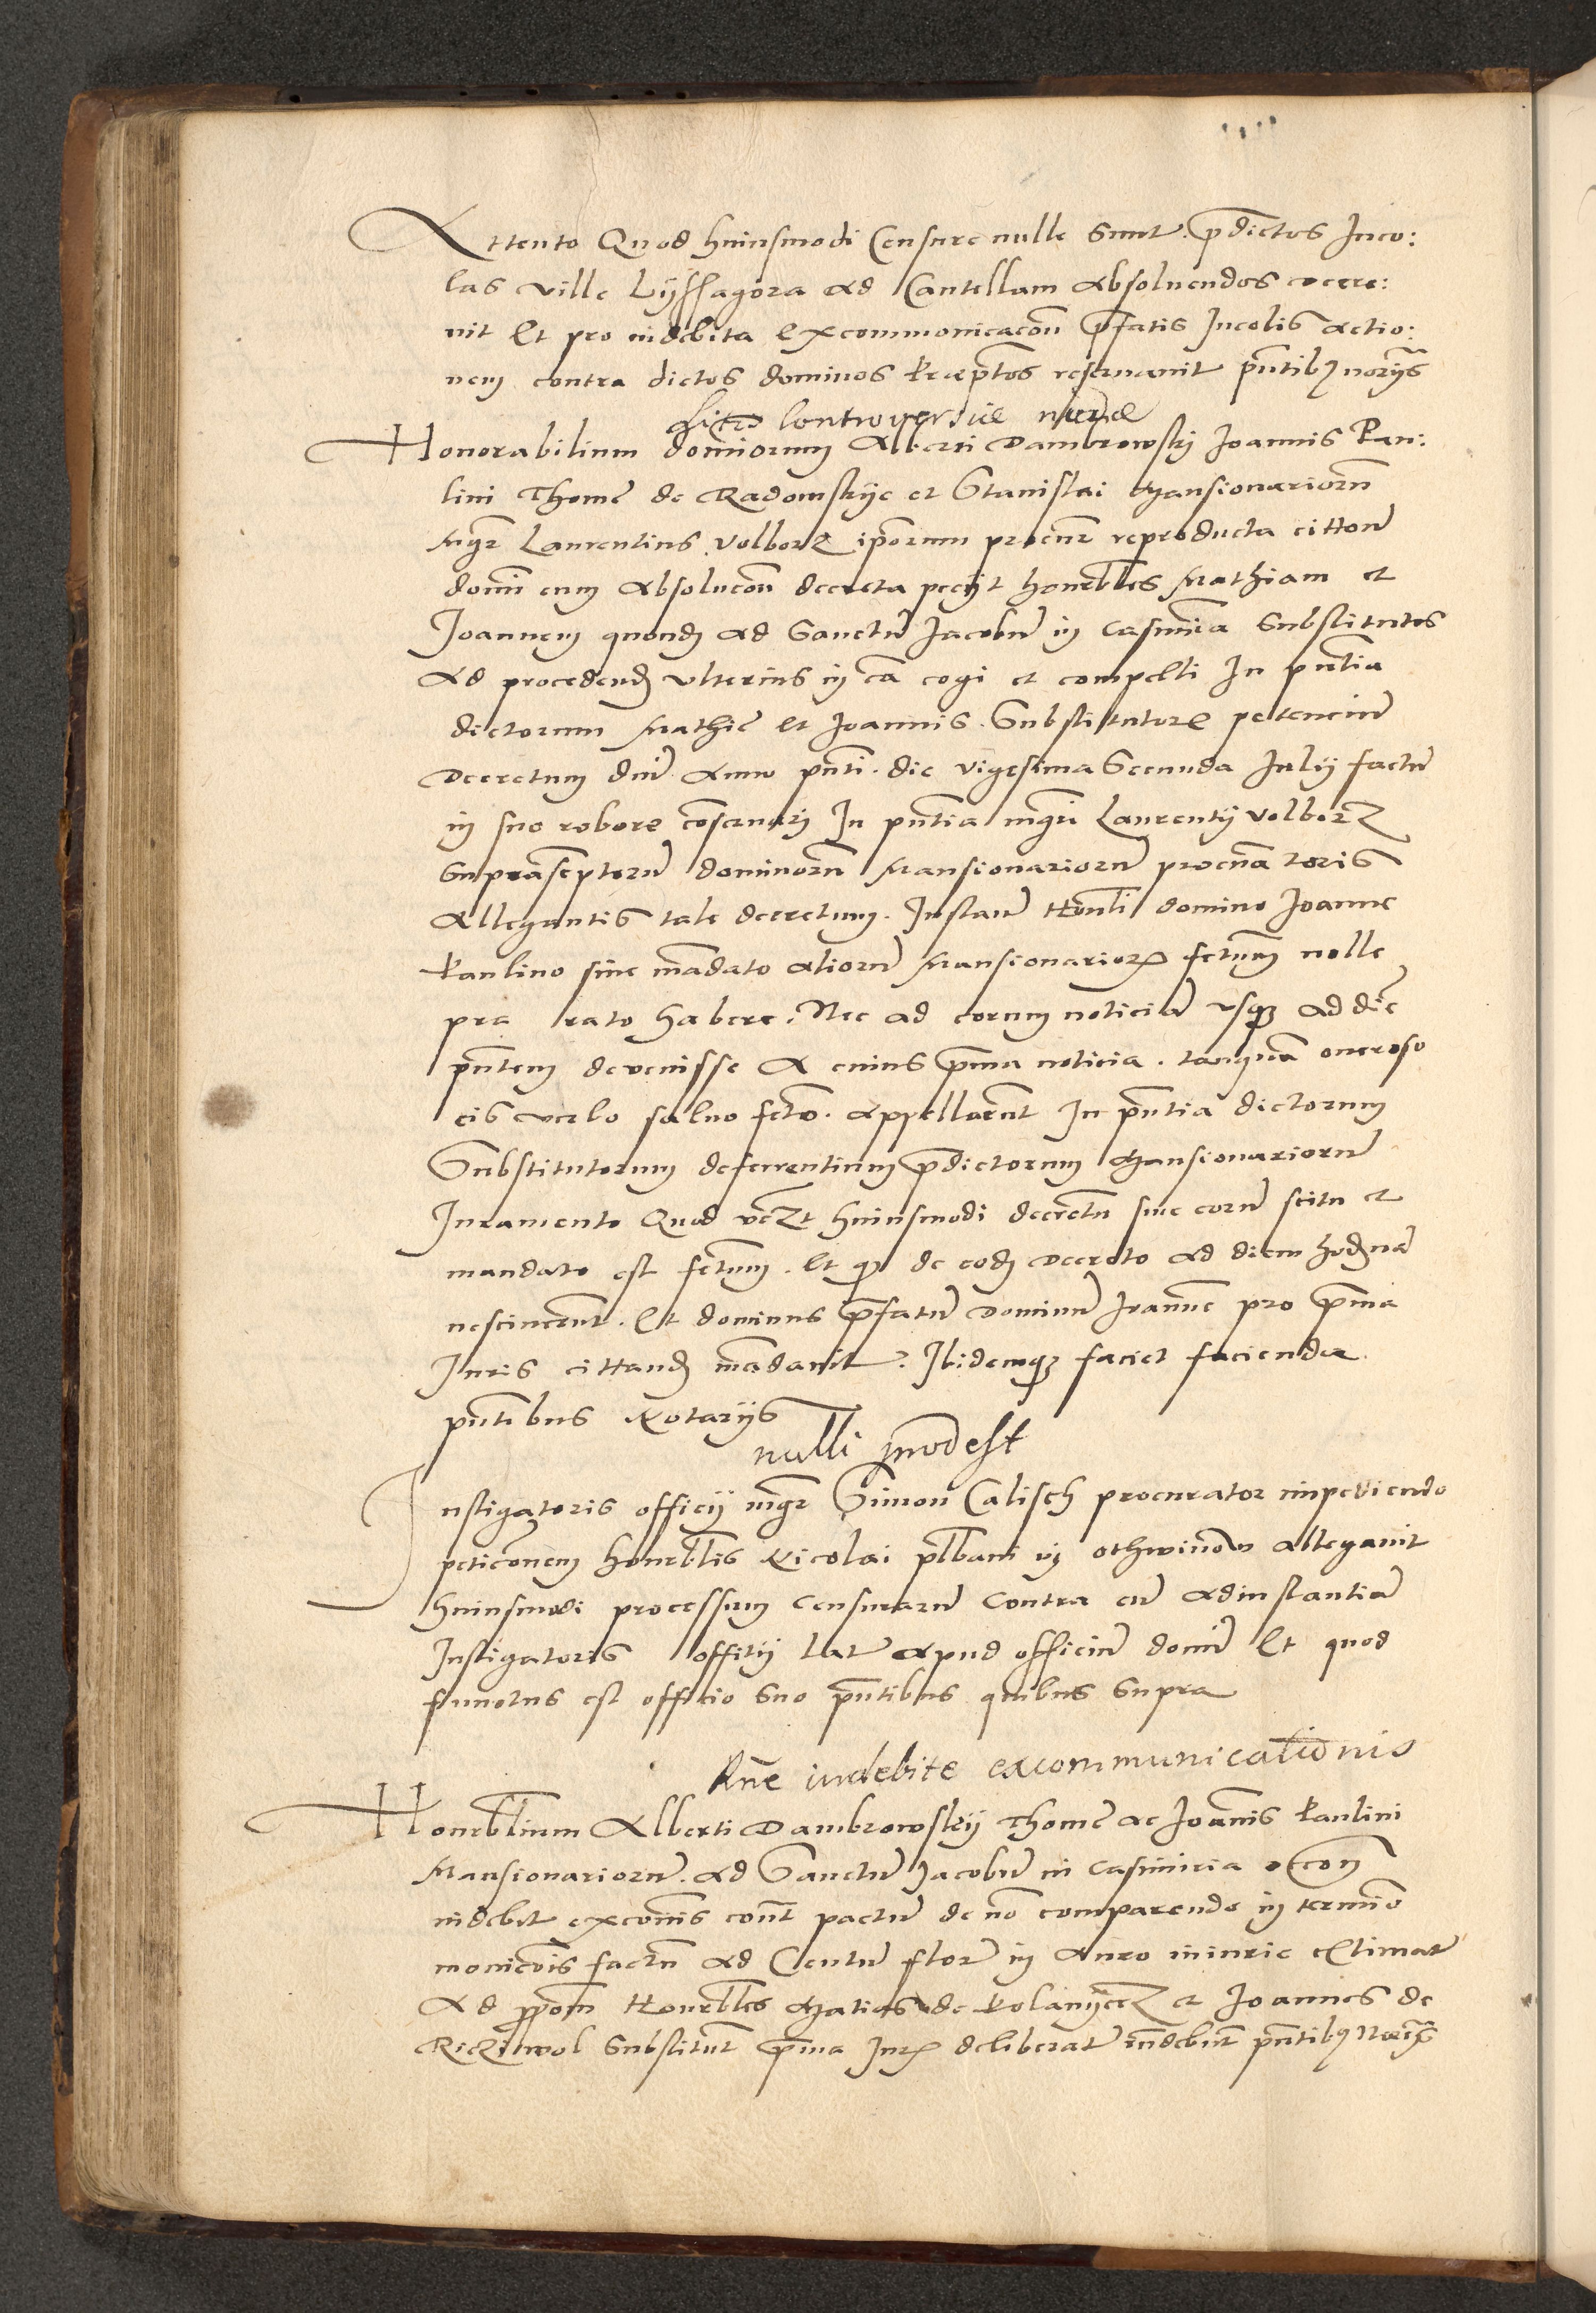 Attento Quod huiusmodi Censure nulle sunt. p̄dictos Inco:
las ville Lyssagora ad Cautellam absoluendos decre:
uit Et pro indebita excommonicac̄ou p̄fatis Incolis actio:
nem contra dictos dominos reseruauit pn̄tibꝫ norijs
controuersiæ
Honorabilium dominorum Alberti Dambrowskÿ Joannis Pau:
lini Thome de Radomskije et Stanislai Mansionariorū
Mgr̄ Laurentius Volborz ip̄orum procur̄ reproducta citton̄
domī cum absoluc̄on decreta pecijt honorbl̄es Mathiam et
Joannem quond̄ ad Sanctū Jacobū in Casimiria Substitutos
ad procedend̄ vlterius in cā cogi et compelli In pn̄tia
dictorum Mathie Et Joannis Substitutorꝫ petenciū
Decretum dnī Anno pn̄ti die vigesima Secunda Julij factū
in suo robore cōseruarj In pn̄tia mgrī Laurentij Volborz
suprascriptorū dominorū Mansionariorū procuratoris
Allegantis tale decretum. Instan̄ Honbli domino Joanne
Paulino sine mādato aliorū Mansionariorꝫ fctum̄ nolle
pro rato habere. Nec ad eorum noticiā vsqꝫ ad diē
pn̄tem deuenisse A cuius p̄ma noticia. tanquā oneroso
eis verbo saluo appellarūt In pn̄tia dictorum
Substitutorum deferentium p̄dictorum Mansionariorū
Juramento Quod huiusmodi decretū sine eorū scitu et
mandato est fctum̄. Et qꝫ de eod̄ Decreto ad diem hod̄ nā
nesciuerūt. Et dominus p̄fatū Dominū Joannē pro p̄ma
Juris cittand̄ mādauit. Ibidemqꝫ faciet facienda
pn̄tibus Notarijs
nulli
Instigatoris officij mgr̄ Simon Calisch procurator impediendo
petic̄onem honorbl̄is Nicolai pl̄bani in othwinow allegauit
huiusmodi processum censurarū contra eū ad instantiā
Instigatoris offitij lat apud officiū domī Et quod
functus est officio suo pn̄tibus quibus supra
indebite excommunicationis
Honorbl̄ium Alberti Dambrowskij Thome ac Joānis Paulini
Mansionariorū ad Sanctū Jacobū in Casimiria
indebit excoīnis cont̄ pactū de nō comparendo in termīo
monic̄ois factū ad Centū flor in auro iniurie estimat
Ad Honorbl̄es Matias de et Joannes de
Substitut̄ p̄ma Jurꝫ deliberat pn̄tibꝫ Norijs